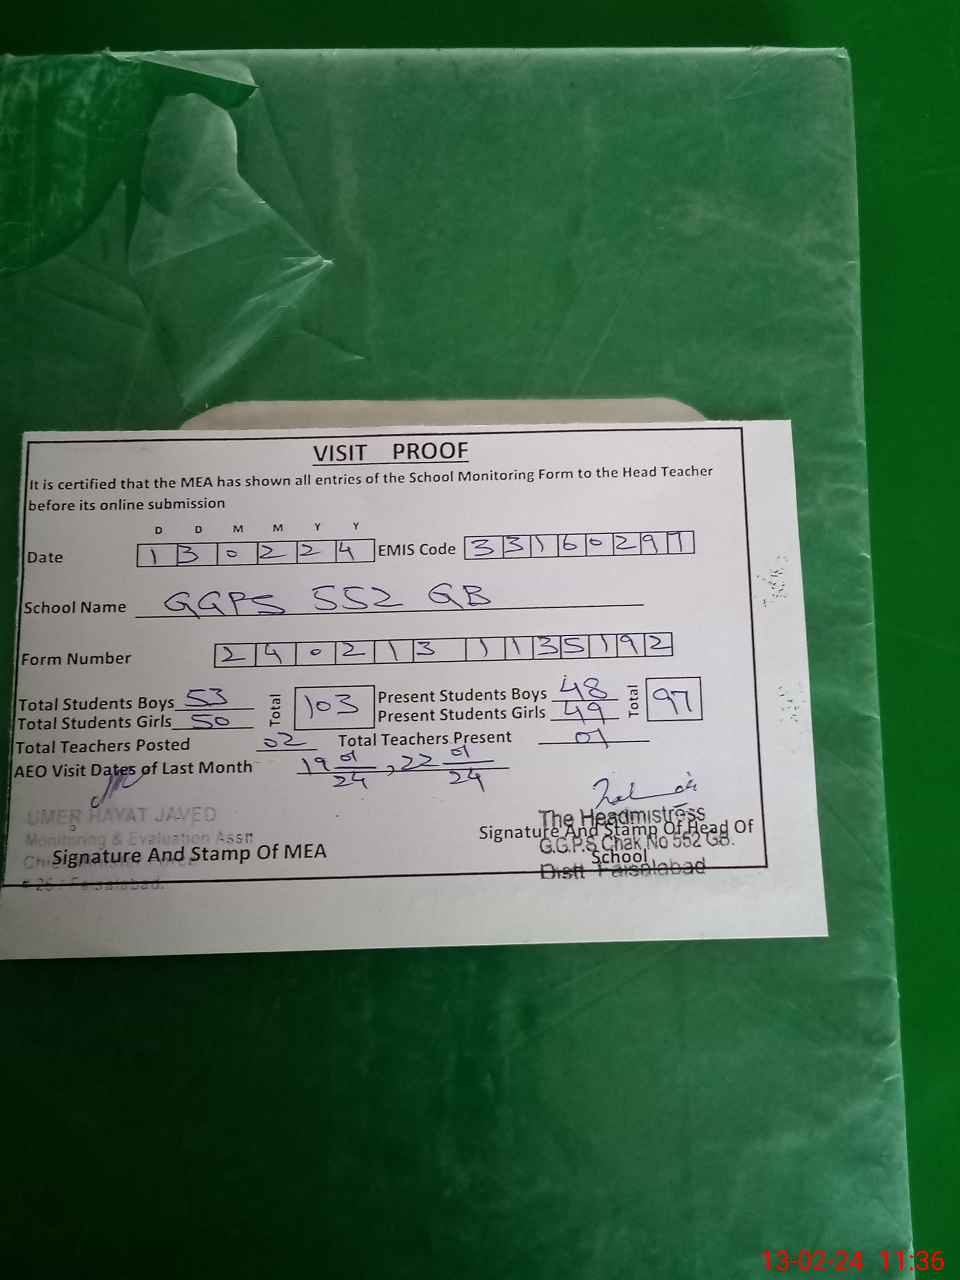 VISIT PROOF
It is certified that the MEA has shown all entries of the School Monitoring Form to the Head Teacher
before its online submission
D D M M Y Y
Date 1 3 0 2 2 4 EMIS Code 3 3 1 6 0 2 9 7
School Name GGPS 552 GB
Form Number 2 4 0 2 1 3 1 1 3 5 1 9 2
Total Students Boys 53 Total 103 Present Students Boys 48 Total 97
Total Students Girls 50 Present Students Girls 49
Total Teachers Posted 02 Total Teachers Present 01
AEO Visit Dates of Last Month 19 01/24, 22 01/24
UMER HAYAT JAVED
Monitoring & Evaluation Asstt
Signature And Stamp Of MEA
Faisalabad.
The Headmistress
Signature And Stamp Of Head Of
G.G.P.S Chak No 552 GB.
School
Distt Faisalabad
13-02-24 11:36